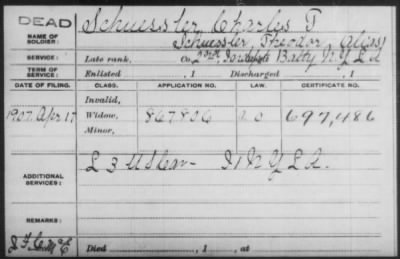 DEAD
Schuessler Charles T
NAME OF SOLDIER:
Schuessler, Theodor (Alias)
SERVICE: Late rank, Co. 2" Indpt Batty N.Y. L A
TERM OF SERVICE: Enlisted , 1 Discharged , 1
DATE OF FILING: CLASS. APPLICATION NO. LAW. CERTIFICATE NO.
Invalid,
1907. Apr 17 Widow, 867806 697,486
Minor,
ADDITIONAL SERVICES: L 3 US Car - I 1 N Y L A.
REMARKS:
Died , 1 , at